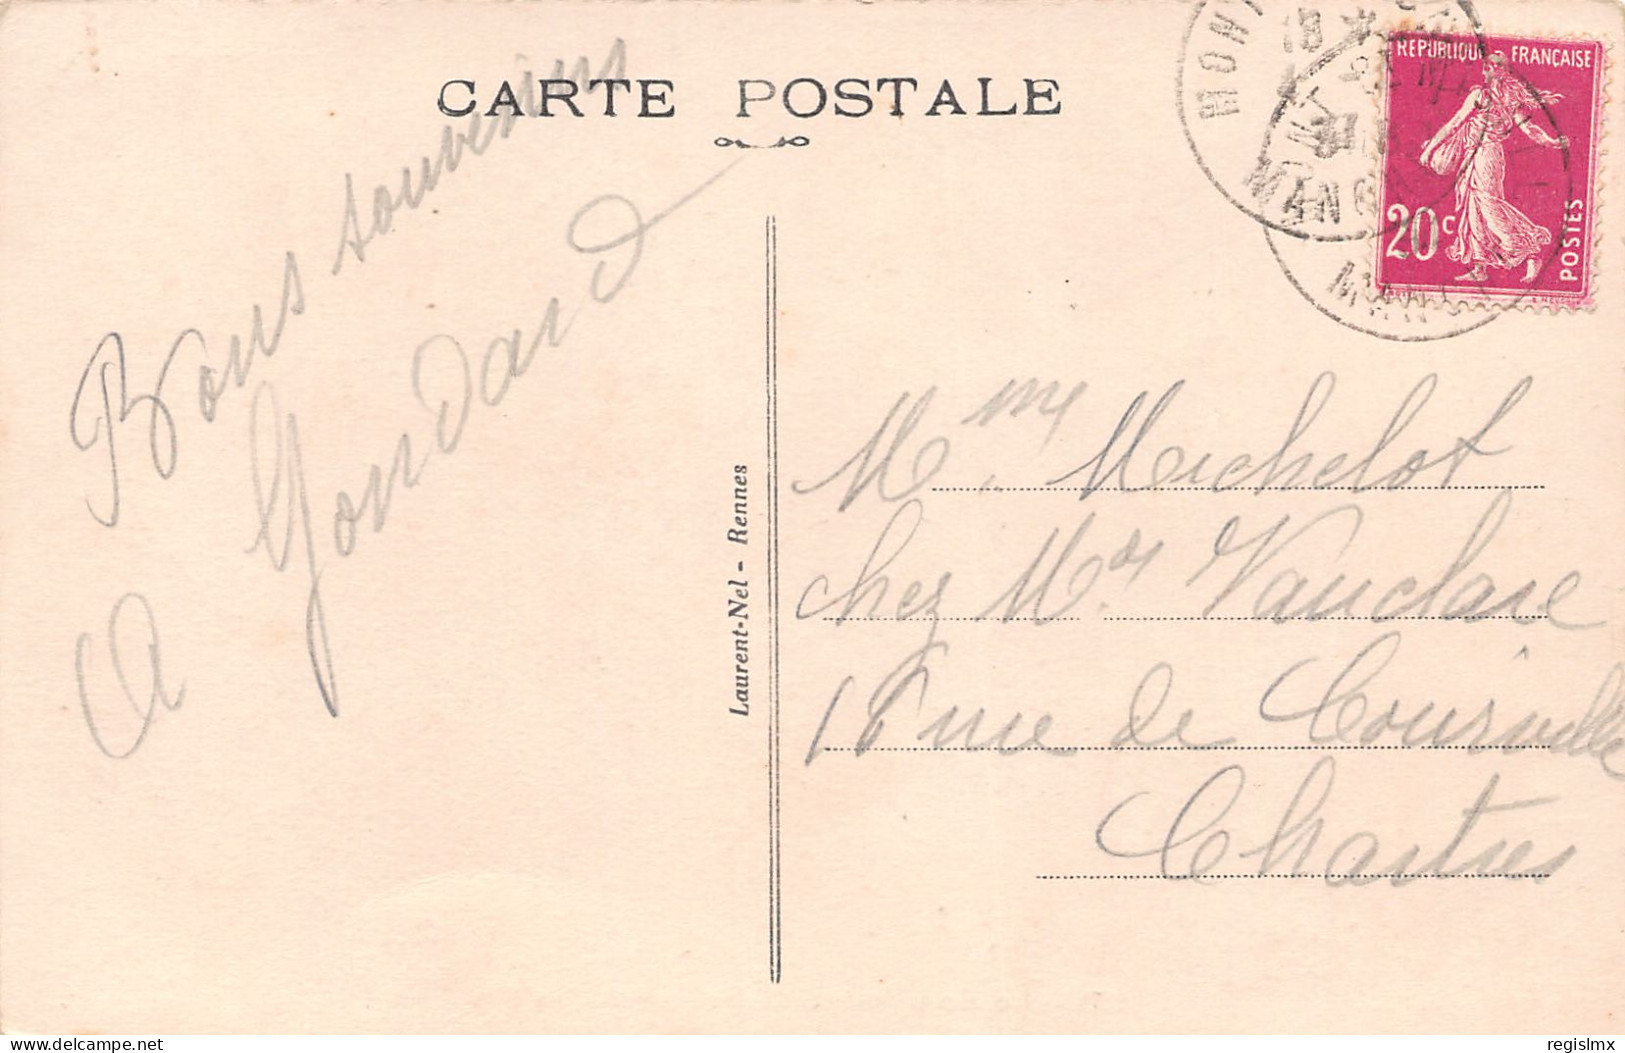 CARTE POSTALE
Bons souvenirs
A Gondard
Laurent-Nel - Rennes
RÉPUBLIQUE FRANÇAISE
20c
POSTES
MONT
18 *
MANCHE
MONT
MANCHE
Mme Michelot
chez Mr Vauclare
18 rue de Courville
Chartres
delcampe.net
regislmx